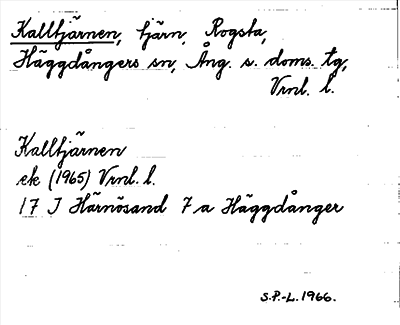 Kalltjärnen, tjärn, Rogsta,
Häggdångers sn, Ång. s. doms. tg,
Vrnl. l.
Kalltjärnen
ek (1965) Vrnl. l.
17 J Härnösand 7 a Häggdånger
S.P.-L. 1966.